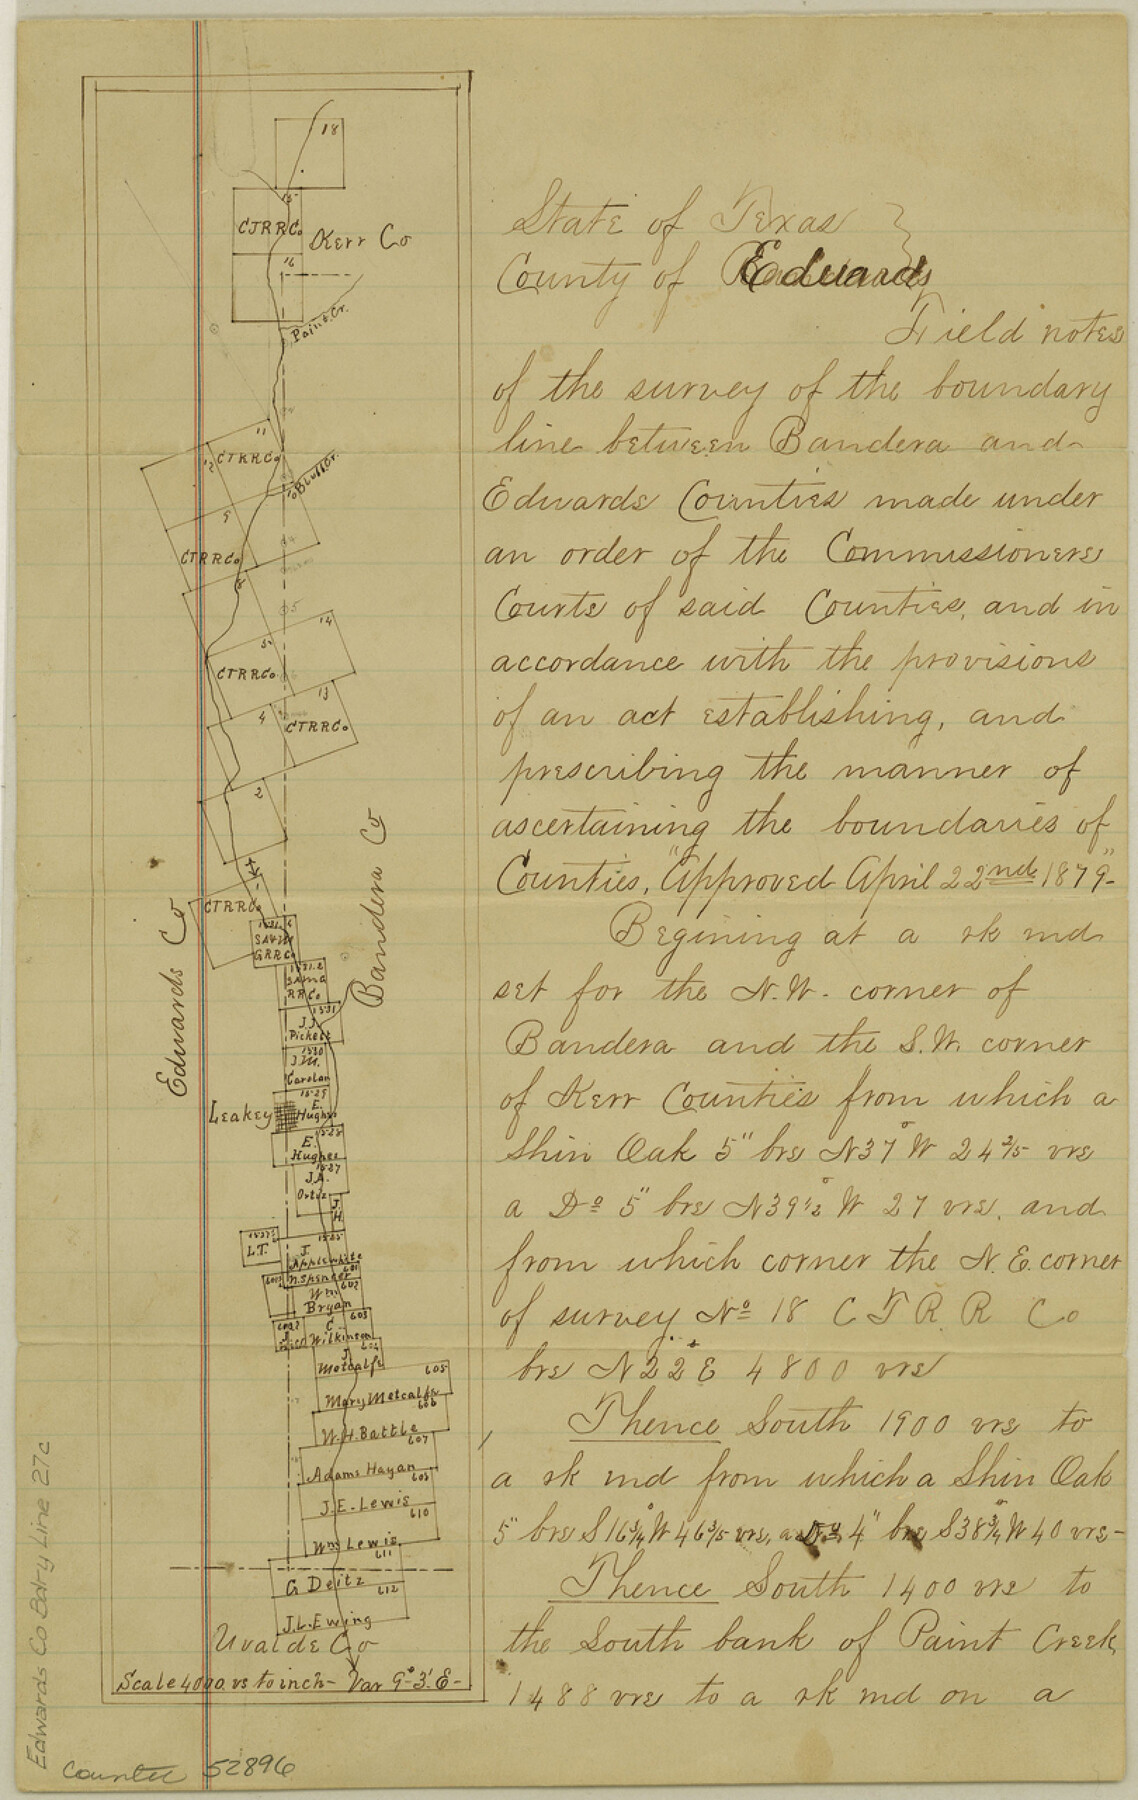 18
15
CTRRCo
Kerr Co
16
Paint Cr.
11
12
CTRRCo
Bluff Cr.
9
CTRRCo
8
5
14
CTRRCo.
13
4
CTRRCo
2
CTRRCo
Edwards Co
Bandera Co
6
SA&M
GRRCo
1531.2
SA&MG
RRCo
1531
J.J.
Pickett
1530
J.M.
Carolan
1529
Leakey
E.
Hughes
1528
E.
Hughes
1527
J.A.
Ortiz
J.
H.
L.T.
J.
Applewhite
601
N. Spencer
602
Wm
Bryan
603
C
Wilkinson
604
J.
Metcalfe
605
Mary Metcalfe
606
W.H. Battle
607
Adams Hayan
608
J.E. Lewis
610
Wm Lewis
611
G Deitz
612
J.L. Ewing
Uvalde Co
Scale 4000 vs to inch - Var 9° 3' E -
State of Texas
County of Edwards
Field notes
of the survey of the boundary
line between Bandera and
Edwards Counties made under
an order of the Commissioners
Courts of said Counties, and in
accordance with the provisions
of an act establishing, and
prescribing the manner of
ascertaining the boundaries of
Counties, "Approved April 22nd 1879"-
Begining at a rk md
set for the N.W. corner of
Bandera and the S.W. corner
of Kerr Counties from which a
Shin Oak 5" brs N37°W 24 2/5 vrs
a Do 5" brs N39 1/2°W 27 vrs. and
from which corner the N.E. corner
of survey No 18 C T R R Co
brs N22°E 4800 vrs
Thence South 1900 vrs to
a rk md from which a Shin Oak
5" brs S16 3/4°W 46 3/5 vrs, a Do 4" brs S38 3/4°W 40 vrs-
Thence South 1400 vrs to
the South bank of Paint Creek
1488 vrs to a rk md on a
Edwards Co Bdry Line 27c
Counter 52896